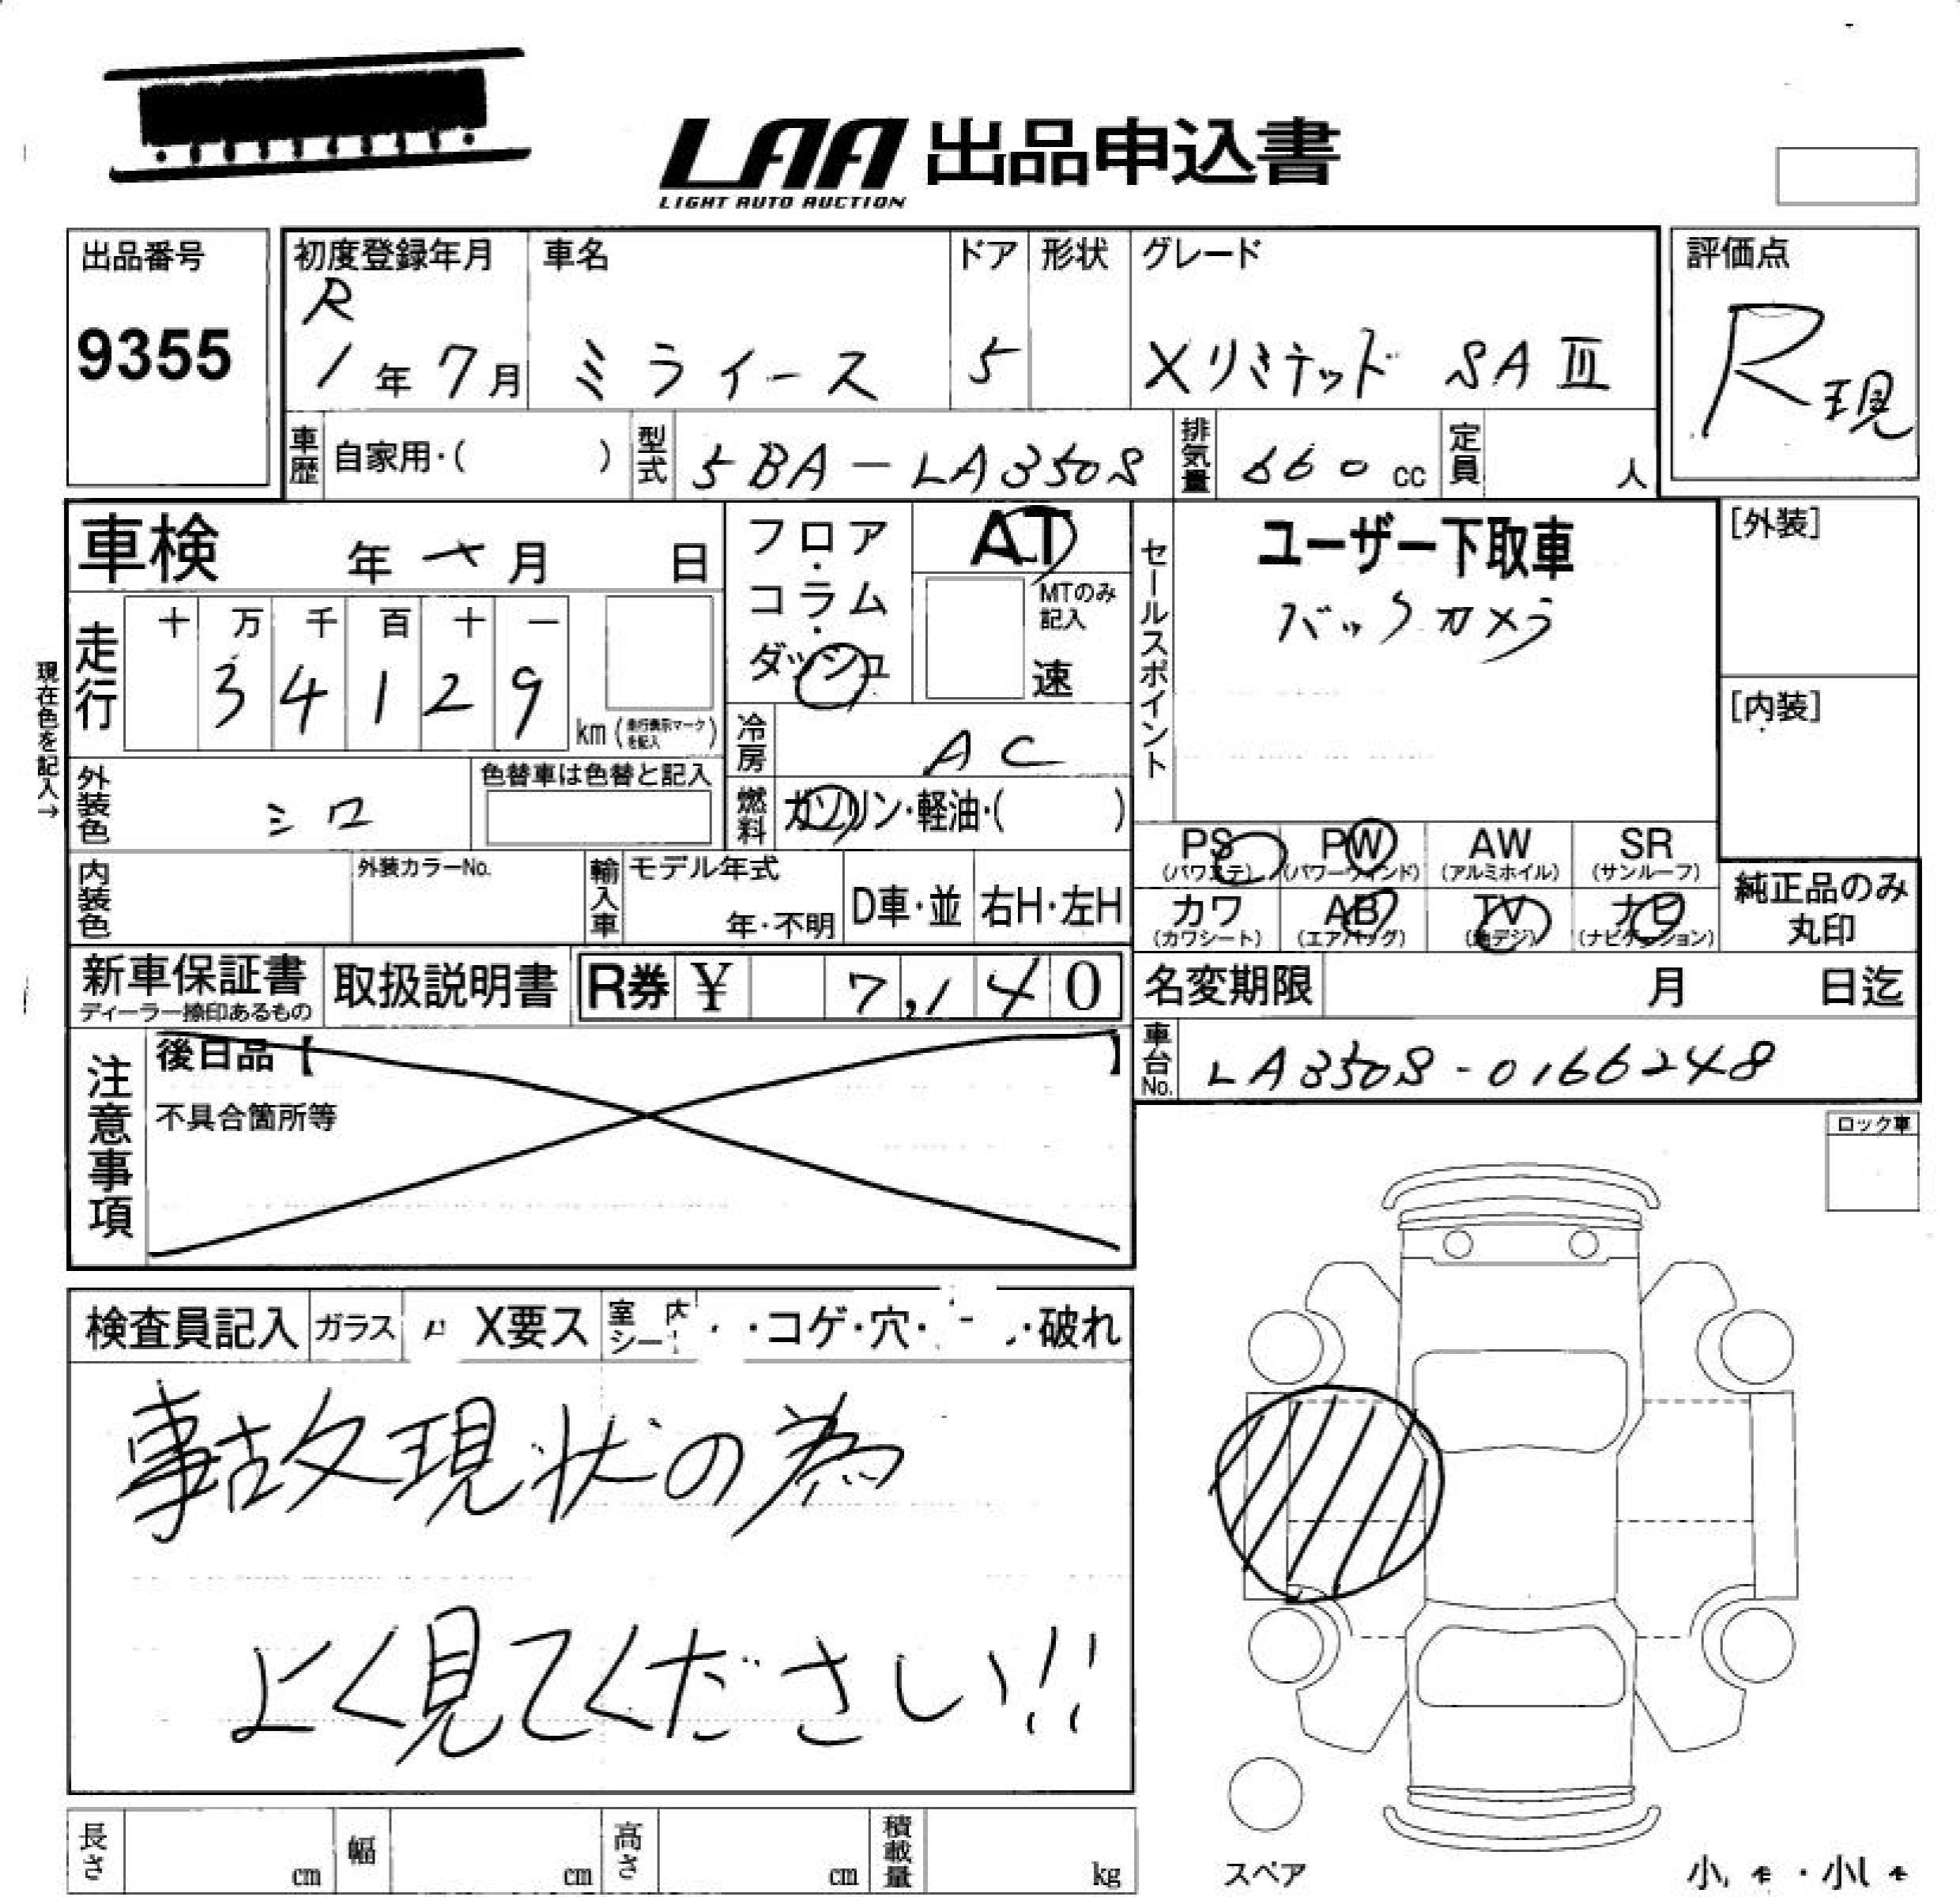 LAA 出品申込書
LIGHT AUTO AUCTION
出品番号
9355
初度登録年月
R
1年7月
車名
ミライース
ドア
5
形状
グレード
Xリミテッド SAⅢ
評価点
R現
車歴
自家用・( )
型式
5BA-LA350S
排気量
660cc
定員
人
車検 年 月 日
フロア・コラム・ダッシュ
AT
MTのみ記入
速
セールスポイント
ユーザー下取車
バックカメラ
[外装]
[内装]
現在色を記入→
走行
十 万 千 百 十 一
3 4 1 2 9
km (走行表示マークを記入)
冷房
AC
外装色
シロ
色替車は色替と記入
燃料
ガソリン・軽油・( )
PS (パワステ)
PW (パワーウィンド)
AW (アルミホイル)
SR (サンルーフ)
カワ (カワシート)
AB (エアバッグ)
TV (地デジ)
ナビ (ナビゲーション)
純正品のみ丸印
内装色
外装カラーNo.
輸入車
モデル年式
年・不明
D車・並
右H・左H
新車保証書
ディーラー捺印あるもの
取扱説明書
R券 ¥ 7,140
名変期限 月 日迄
車台No.
LA350S-0166248
注意事項
後日品【 】
不具合箇所等
ロック車
検査員記入
ガラス
X要ス
室内
シート
・コゲ・穴・
・破れ
事故現状の為
よく見てください!!
長さ
cm
幅
cm
高さ
cm
積載量
kg
スペア